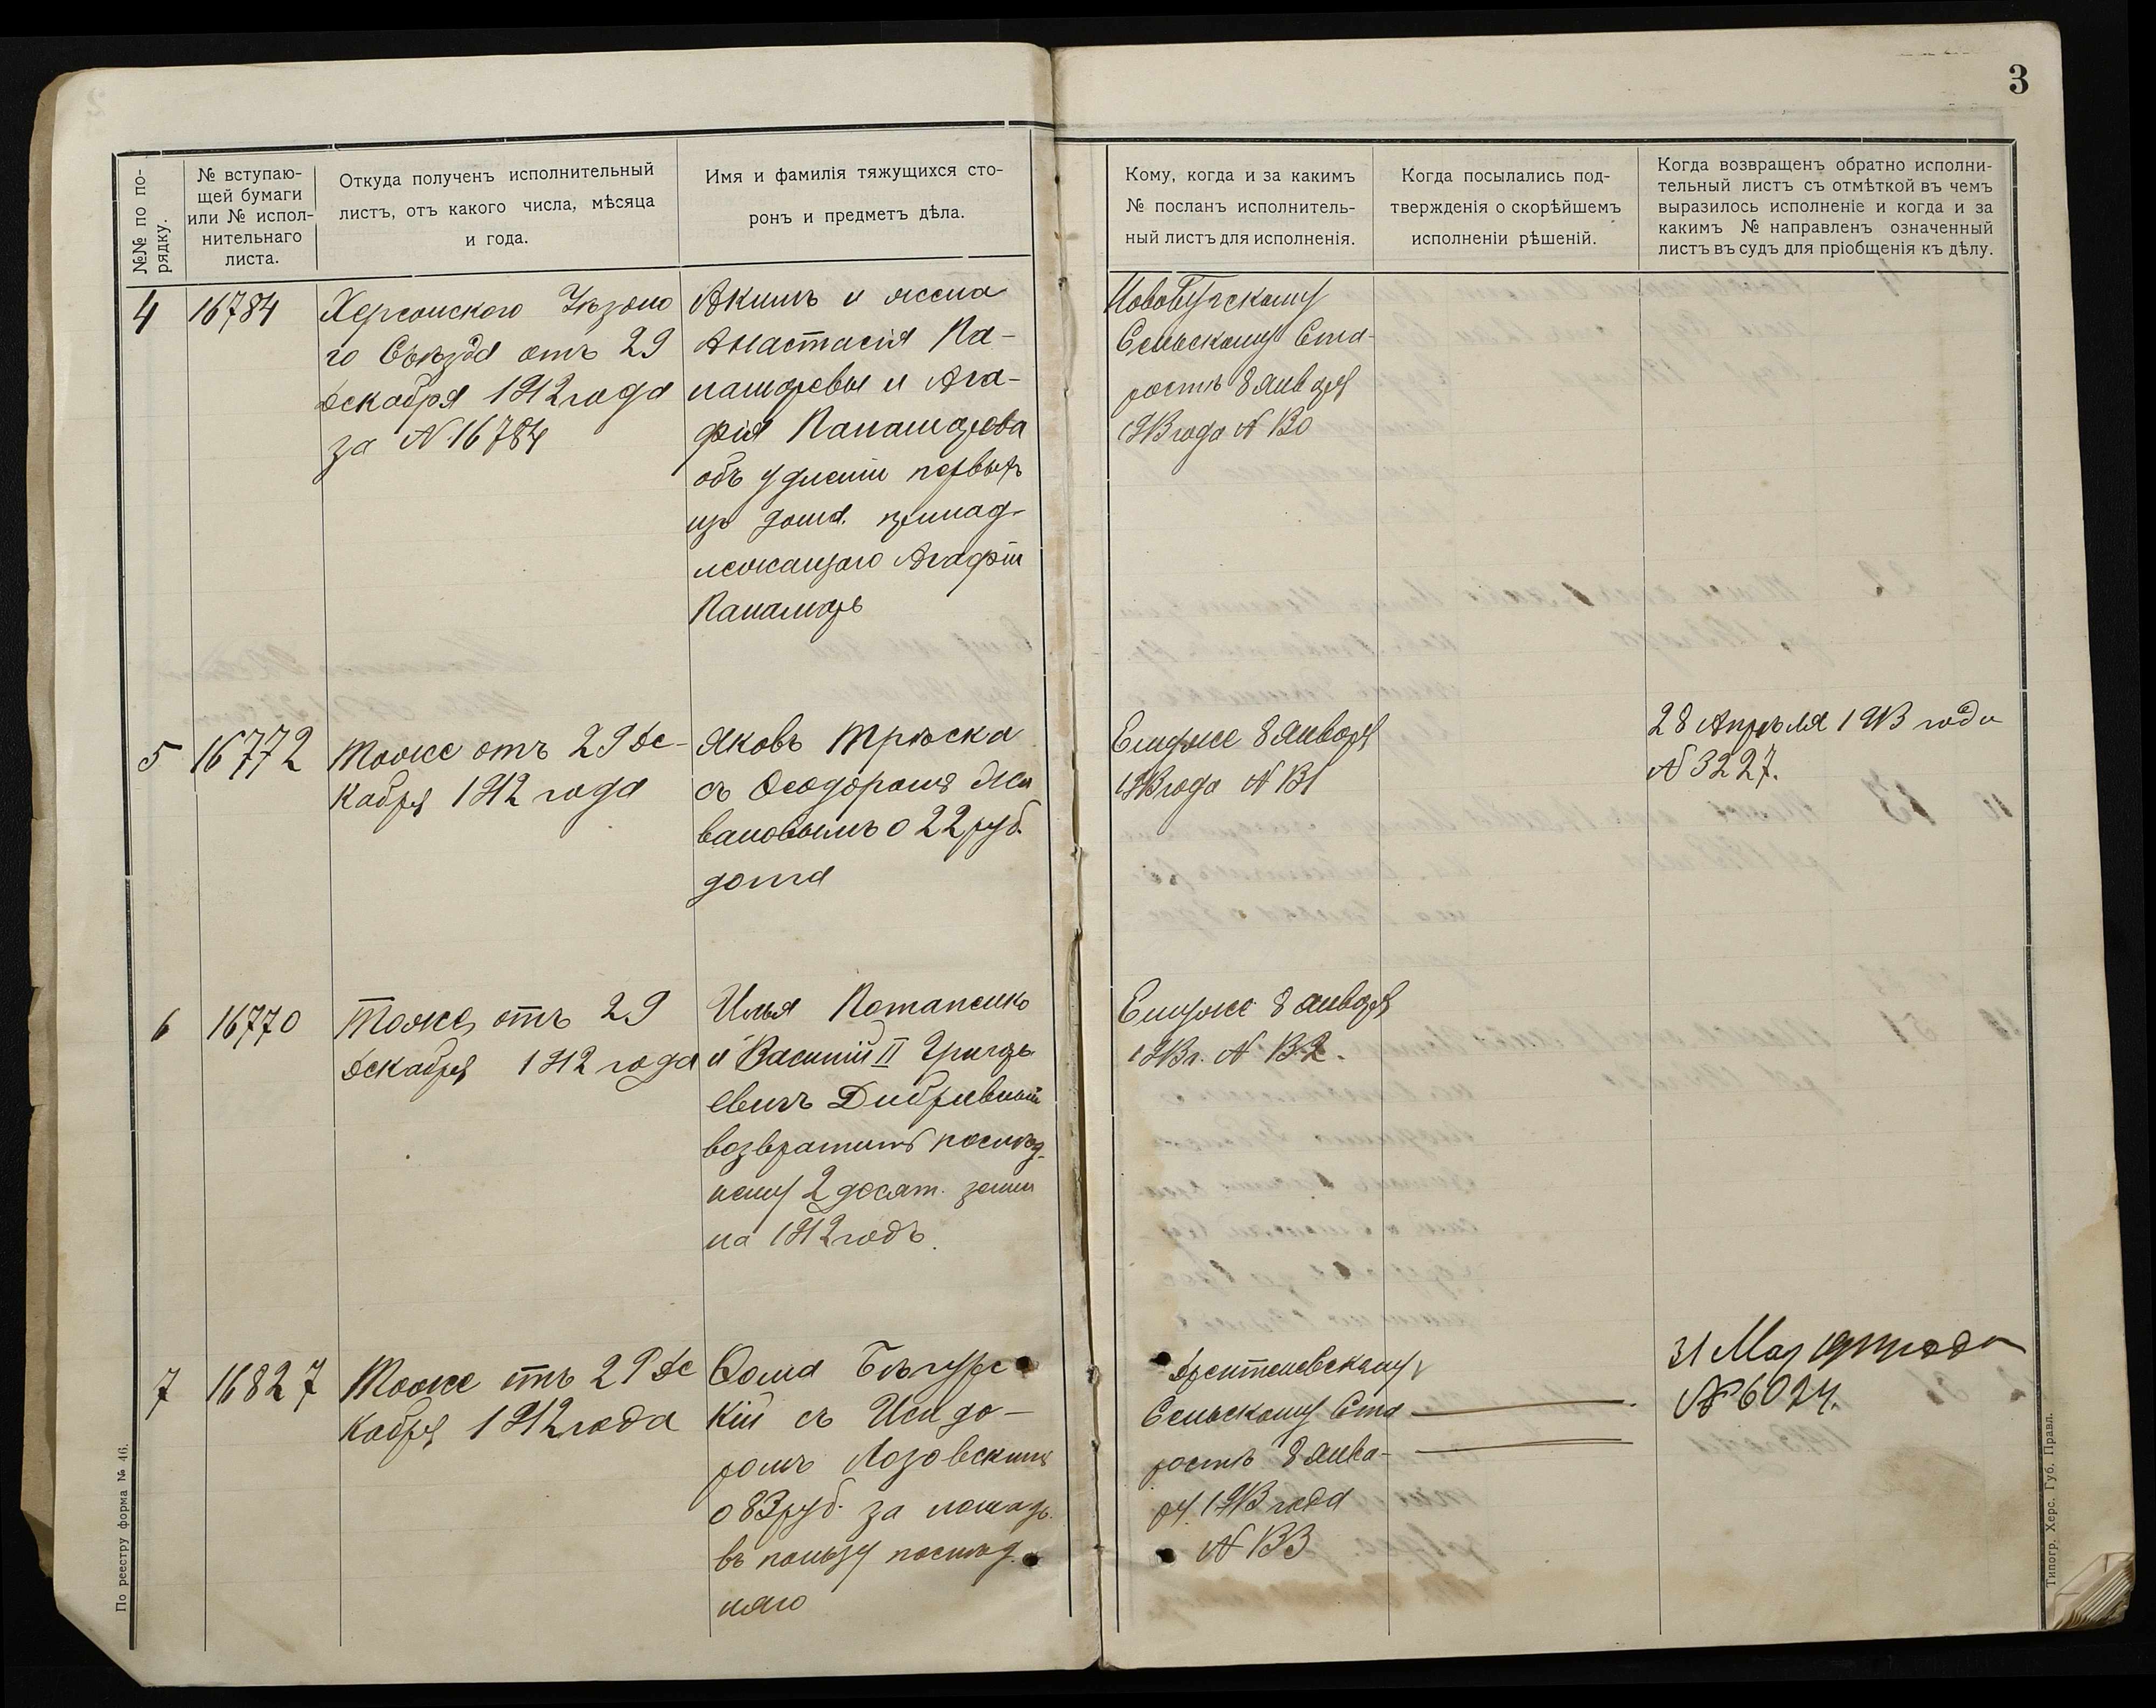 3
№№ по по-
рядку.
№ вступаю-
щей бумаги
или № испол-
нительнаго
листа.
Откуда полученъ исполнительный
листъ, отъ какого числа, мѣсяца
и года.
Имя и фамилія тяжущихся сто-
ронъ и предметъ дѣла.
Кому, когда и за какимъ
№ посланъ исполнитель-
ный листъ для исполненія.
Когда посылались под-
твержденія о скорѣйшемъ
исполненіи рѣшеній.
Когда возвращенъ обратно исполни-
тельный листъ съ отмѣткой въ чемъ
выразилось исполненіе и когда и за
какимъ № направленъ означенный
листъ въ судъ для пріобщенія къ дѣлу.
4
16784
Херсонскаго Уѣздна
го Съѣзда отъ 29
декабря 1912 года
за № 16784
Акимъ и жена
Анастасія Па-
намаревы и Ага-
фія Панамарева
объ удаленіи первыхъ
изъ дома принад-
лежащаго Агафіи
Панамарь
НовоБугскому
Сельскому Ста-
ростѣ 8 января
1913 года № 130
5
16772
Тоже отъ 29 де-
кабря 1912 года
Яковъ Трѣска
съ Ѳеодоромъ
вановымъ о 22 руб.
дома
Емуже 8 января
1913 года № 131
28 Апрѣля 1913 года
№ 3227.
6
16770
Тоже отъ 29
декабря 1912 года
Илья Потапенко
и Василій II Григорь
евичъ Дибривный
возвратить послѣд-
нему 2 десят. земли
на 1912 годъ.
Емуже 8 января
1913 г. № 132.
7
16827
Тоже отъ 29 де
кабря 1912 года
Ѳома Бѣгурс
кій съ Исидо-
ромъ Лозовскимъ
о 83 руб. за лошадь
въ пользу послѣд.
няго
Сельскому Ста
ростѣ 8 янва-
ря 1913 года
№ 133
31 Мая года
№ 6024.
По реестру форма № 46.
Типогр. Херс. Губ. Правл.